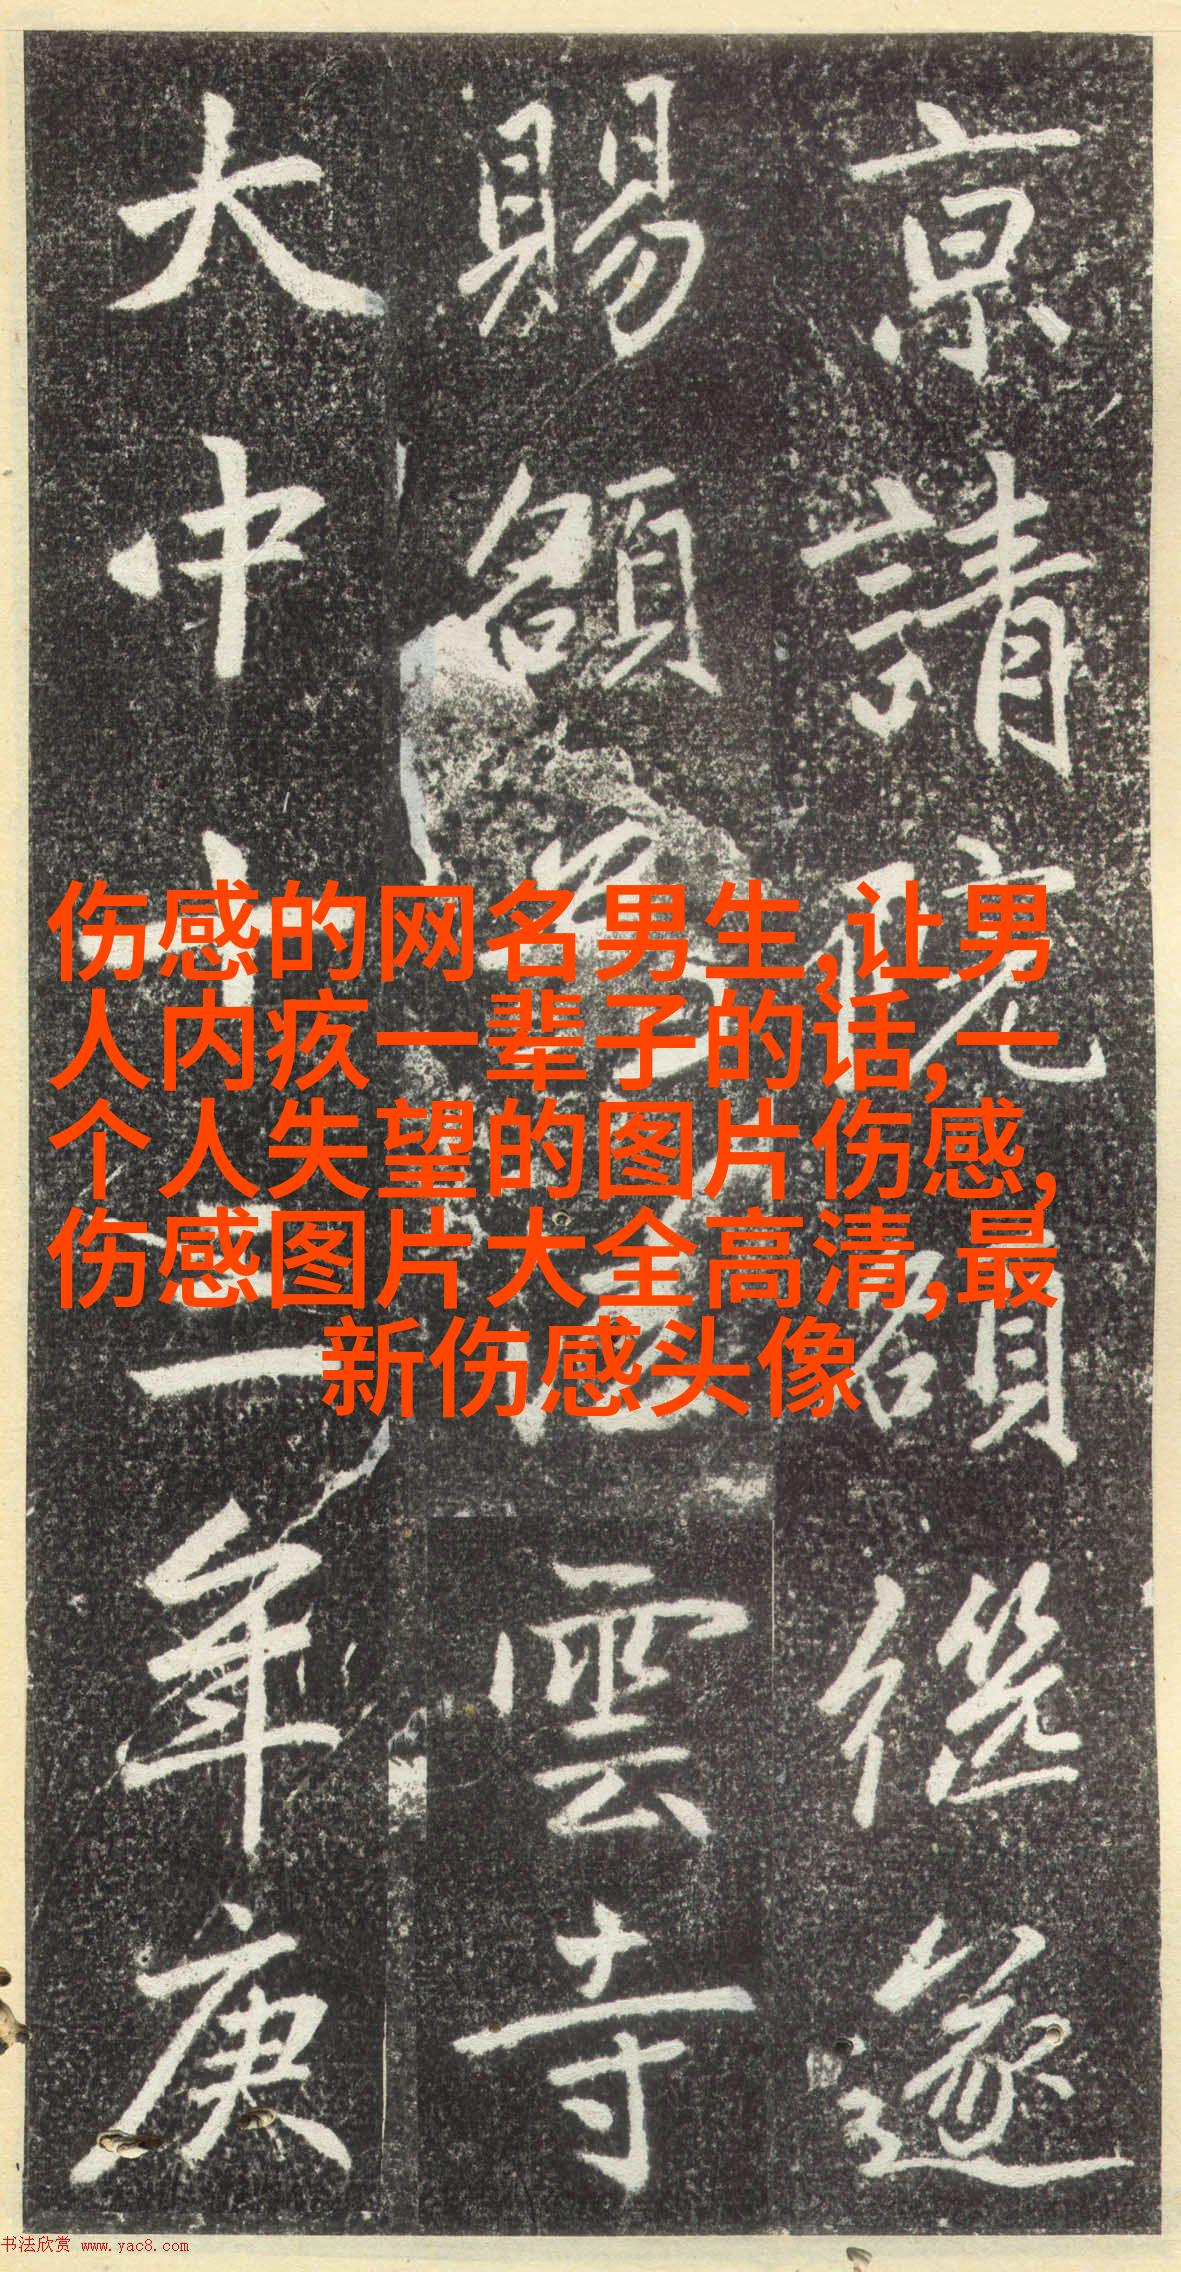 京請院額遂
賜額雲寺
大中十二年庚
伤感的网名男生,让男
人内疚一辈子的话,一
个人失望的图片伤感,
伤感图片大全高清,最
新伤感头像
书法欣赏 www.yac8.com